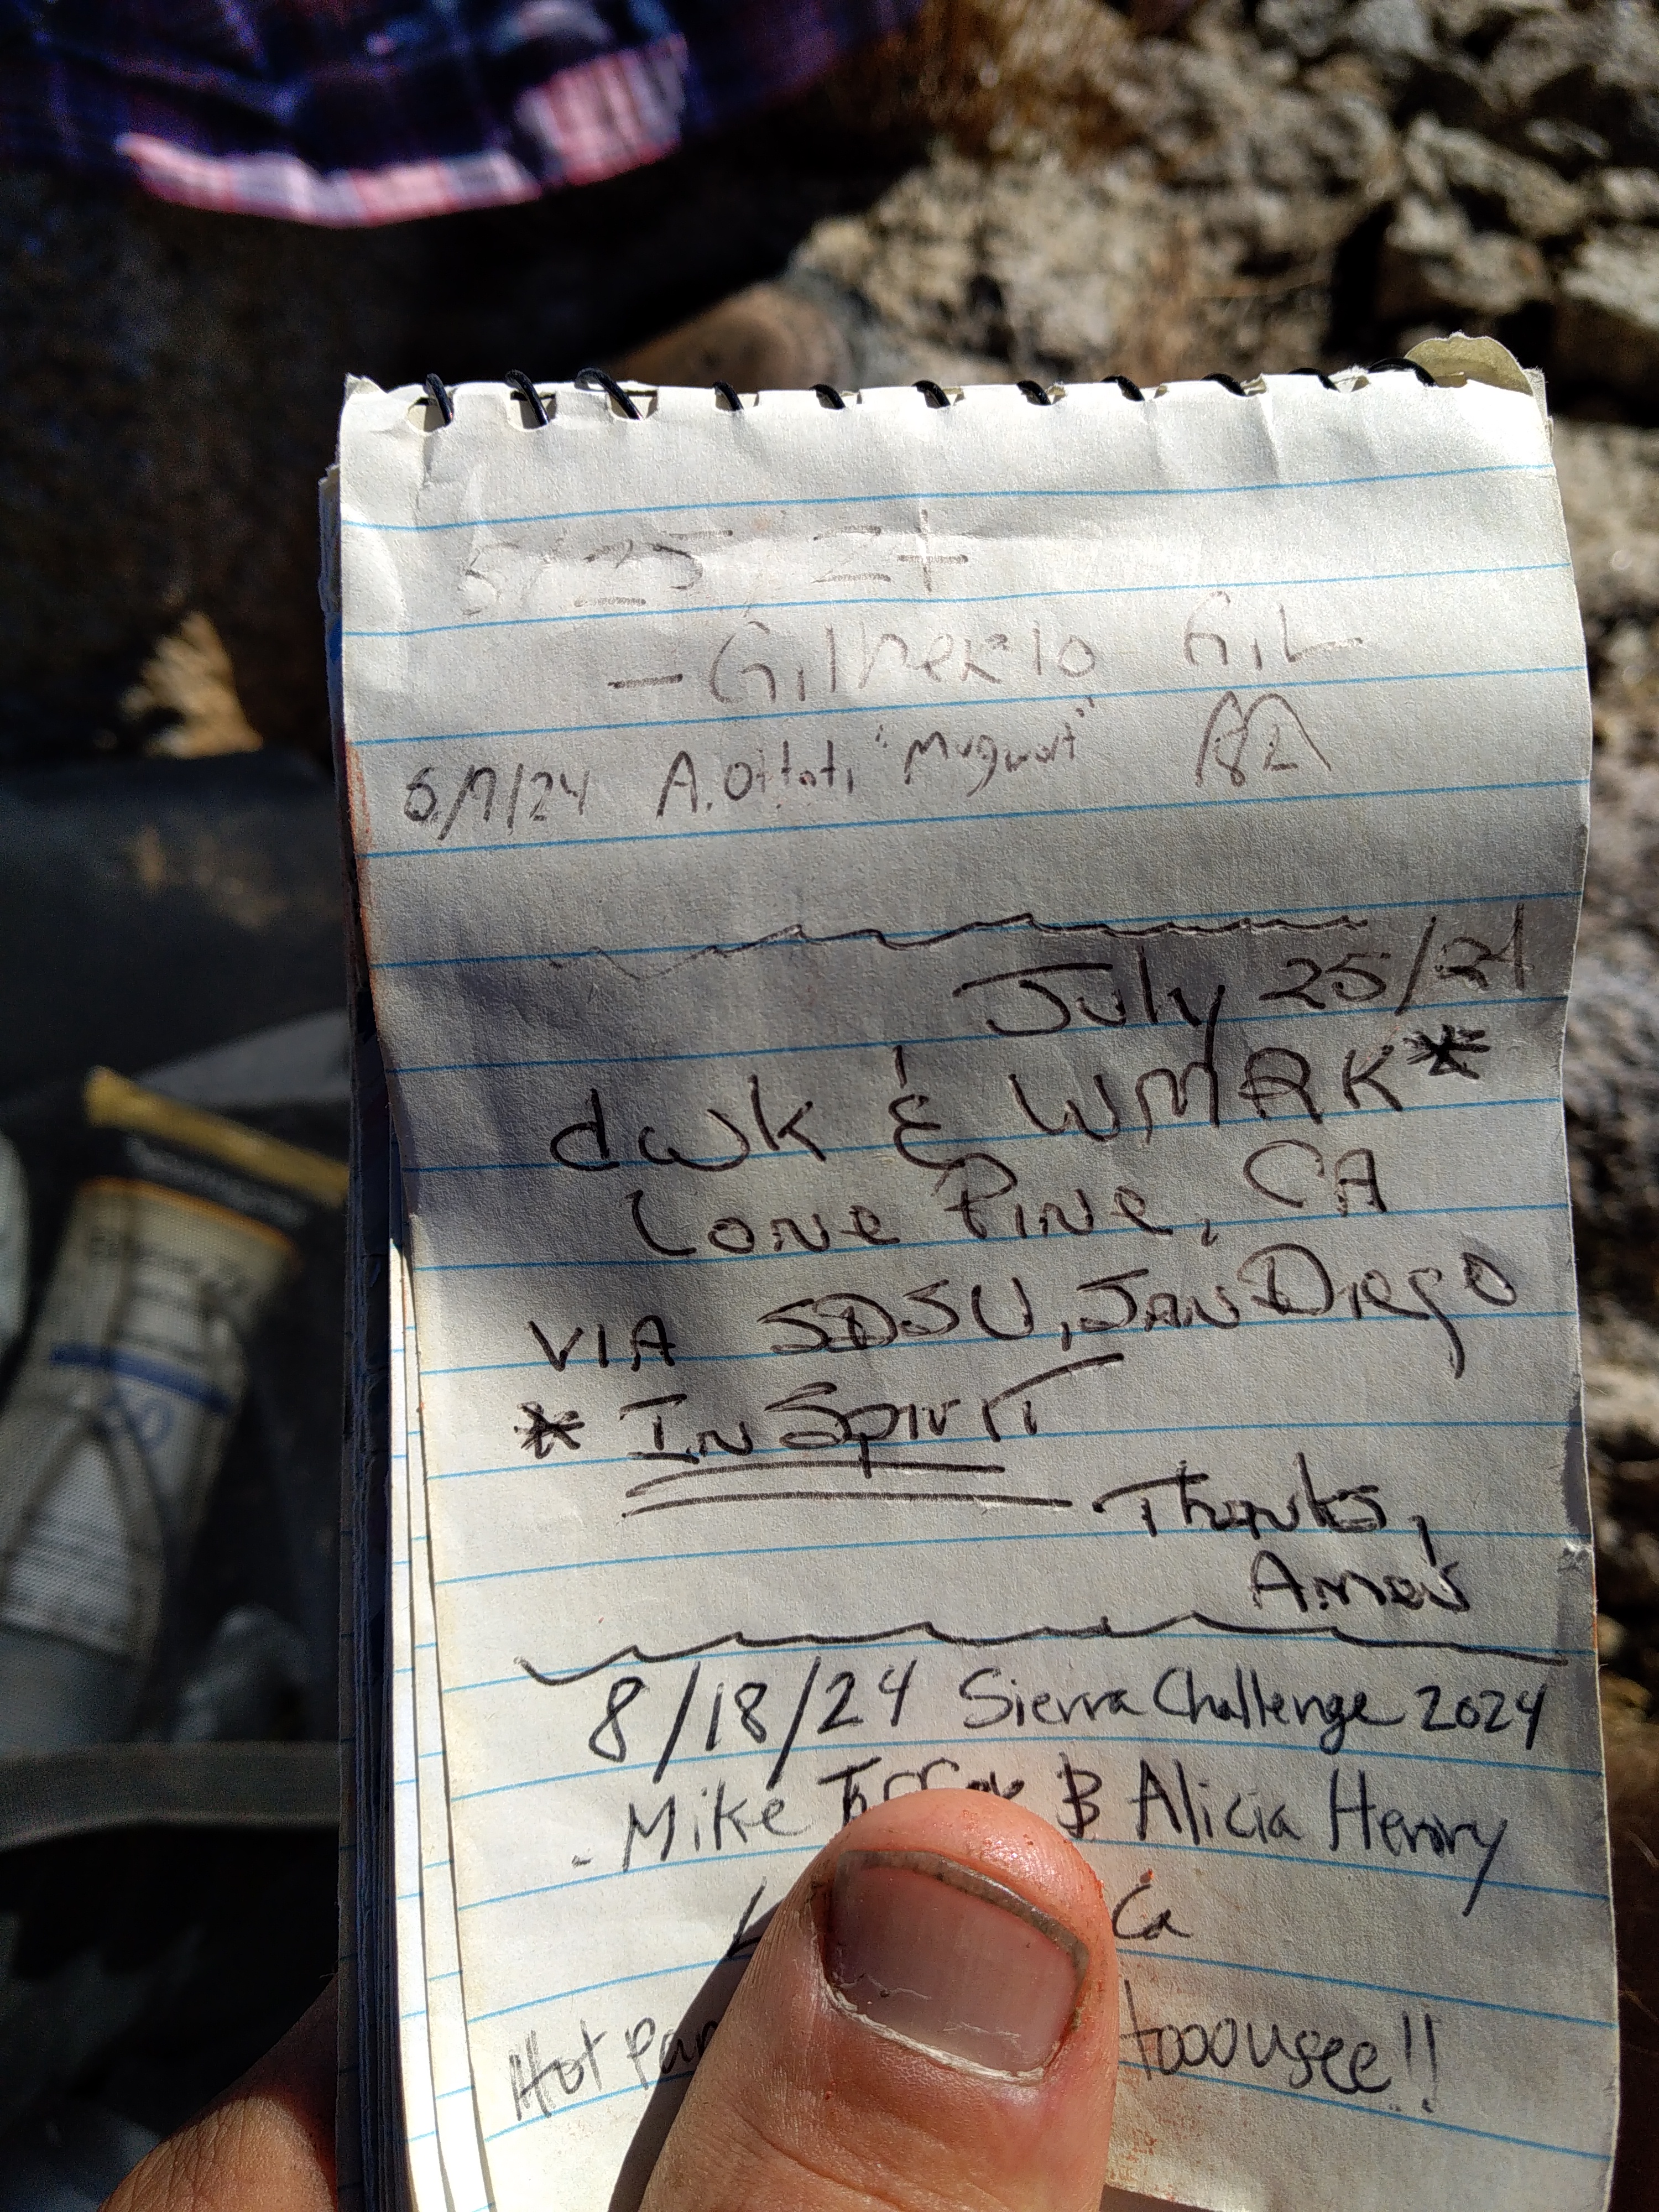 5/25/24
- Gilberto Gil
6/7/24 A. Ottati "Mugwort"
July 25/24
dwk & WMRK*
Lone Pine, CA
VIA SDSU, San Diego
* In Spirit
Thanks,
Amos
8/18/24 Sierra Challenge 2024
- Mike & Alicia Henry
Ca
Hot